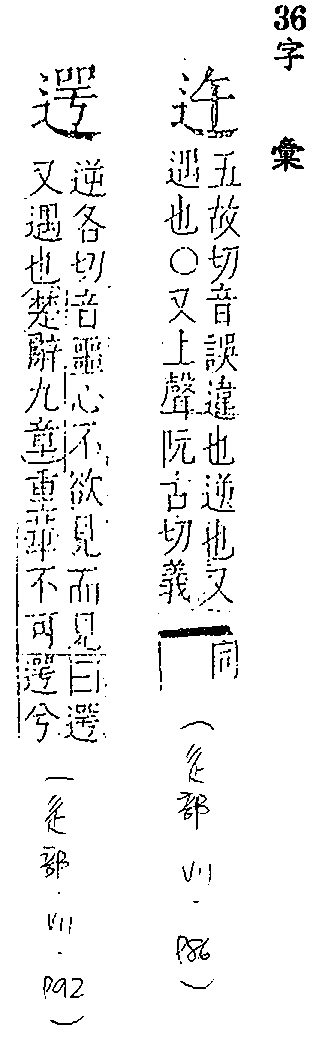 36字彙
迕
五故切音誤違也逆也又
遇也○又上聲阮古切義
同
(辵部 VII · P86)
遻
逆各切音噩心不欲見而見曰遻
又遇也楚辭九章重華不可遻兮
(辵部 · VII · P92)